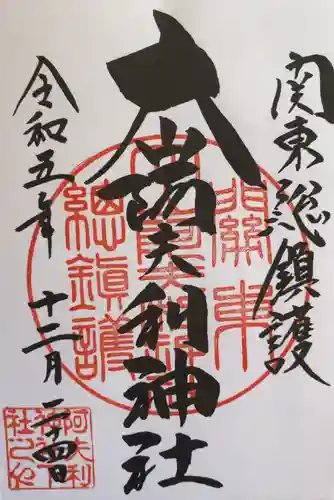 関東総鎮護
大山阿夫利神社
令和五年 十二月二十四日
關東
總鎮護
阿夫利
神社下
社之印